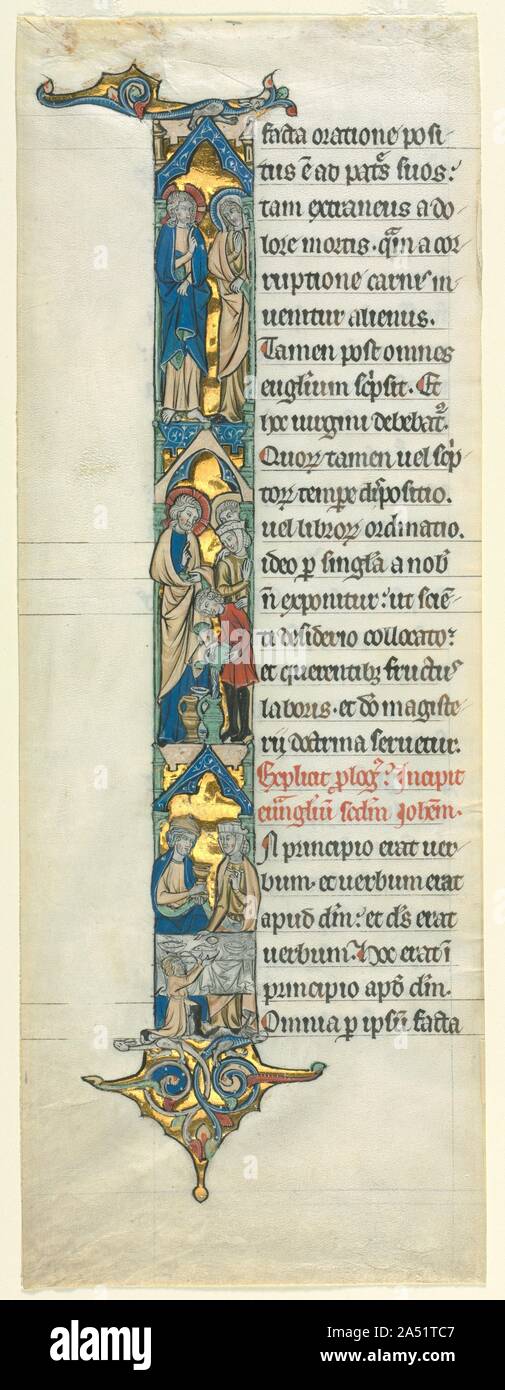 facta oratione posi-
tus ē ad patˢ suos:
tam extraneus a do-
lore mortis. qͣm a cor-
ruptione carnis in-
uenitur alienus.
Tamen post omnes
euglium scͥpsit. Et
hoc uirgini debebat'.
Quoꝝ tamen uel scͥp-
toꝝ tempe disposicio.
uel libroꝝ ordinatio.
ideo p singla a nob'
n̄ exponitur: ut sciē-
ti desiderio collocato:
et querentibꝫ fructus
laboris. et dō magiste-
rij doctrina seruetur.
Explicit plogꝰ: Incipit
euuangliū scdm Johem.
In principio erat uer-
bum. et uerbum erat
apud dm: et ds erat
uerbum. Hoc erat ī
principio apud dm.
Omnia p ipsū facta
alamy
alamy
Image ID: 2A51TC7
www.alamy.com